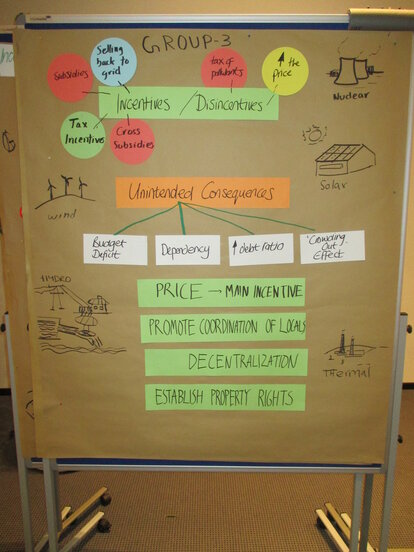 GROUP-3
Subsidies
Selling
back to
grid
tax of
pollutants
↑ the
price
INCENTIVES / DISINCENTIVES
Tax
Incentives
Cross
Subsidies
Nuclear
Solar
Wind
Unintended Consequences
Budget
Deficit
Dependency
↑ debt ratio
"Crowding
Out"
Effect
HYDRO
PRICE → MAIN INCENTIVE
PROMOTE COORDINATION OF LOCALS
DECENTRALIZATION
THermal
ESTABLISH PROPERTY RIGHTS